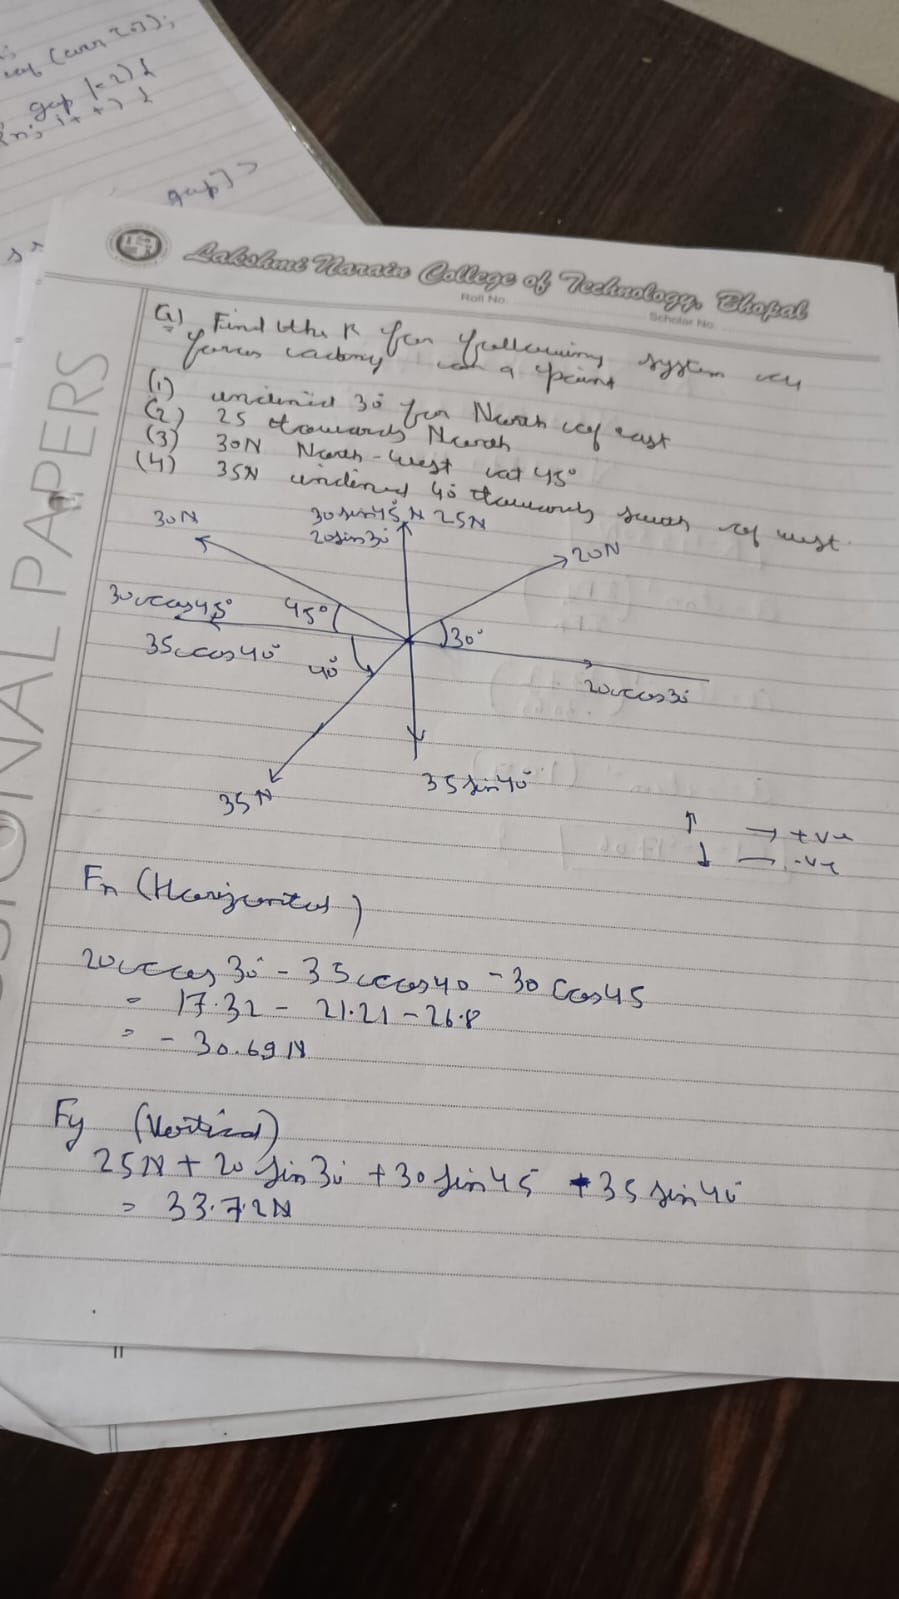 (arr[], 
gap /= 2) {
i++) {
gap]>
Lakshmi Narain College of Technology, Bhopal
Roll No.
Scholar No.
SIONAL PAPERS
Q) Find the R for following system of
forces acting on a point
(1) inclined 30° for North of east
(2) 25 towards North
(3) 30N North-west at 45°
(4) 35N inclined 40 towards south of west.
30N
30sin45
N 25N
20sin30
20N
30cos45°
45°
30°
35cos40
40
20cos30
35N
35sin40
↑ → +ve
↓ → -ve
(Horizontal)
20cos30 - 35cos40 - 30Cos45
= 17.32 - 21.21 - 26.8
= - 30.69N
Fy (Vertical)
25N + 20sin30 + 30sin45 + 35sin40
= 33.72N